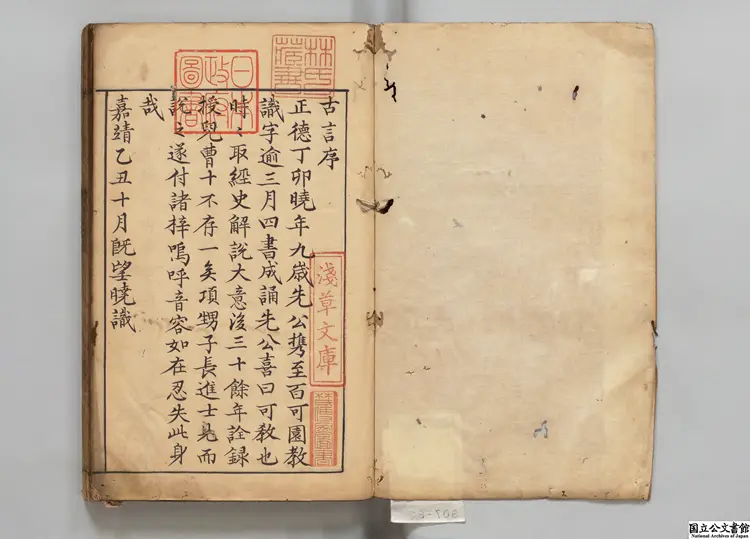 古言序
正德丁卯曉年九歲先公携至百可園教
識字逾三月四書成誦先公喜曰可教也
時〻取經史解說大意後三十餘年詮錄
授兒曹十不存一矣項甥子長進士見而
說之遂付諸梓嗚呼音容如在忍失此身
哉
嘉靖乙丑十月旣望曉識
林氏藏書
日本政府圖書
淺草文庫
国立公文書館
National Archives of Japan